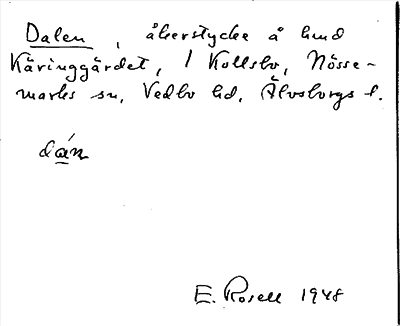 Dalen, åkerstycke å hmd
Käringgärdet, 1 Kollsbo, Nösse-
marks sn, Vedbo hd, Älvsborgs l.
dán
E. Rosell 1948